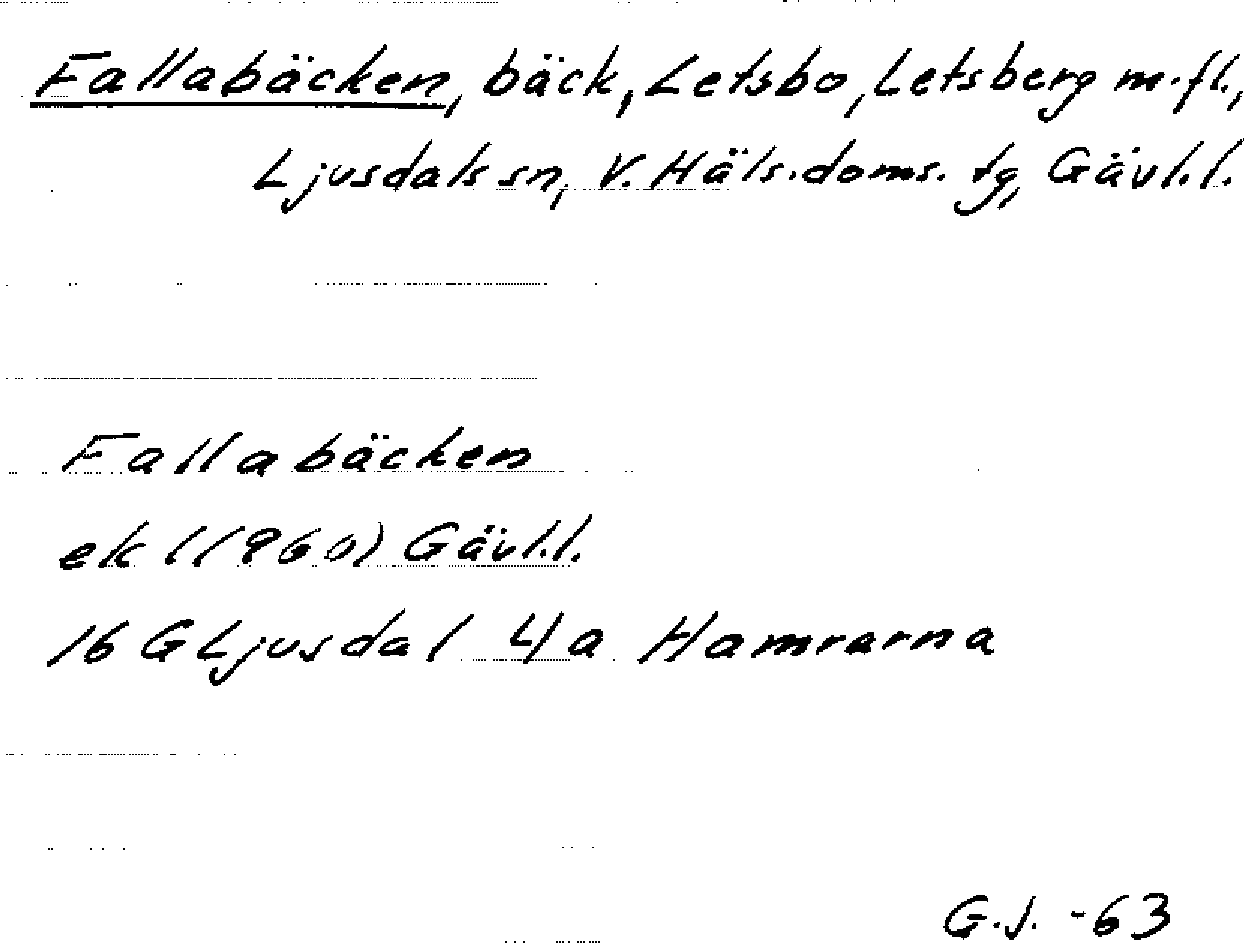 Fallabäcken, bäck, Letsbo, Letsberg m.fl.,
Ljusdals sn, V. Häls. doms. tg, Gävl.l.
Fallabäcken
ek l (1960) Gävl.l.
16 G Ljusdal 4a Hamrarna
G.J. -63